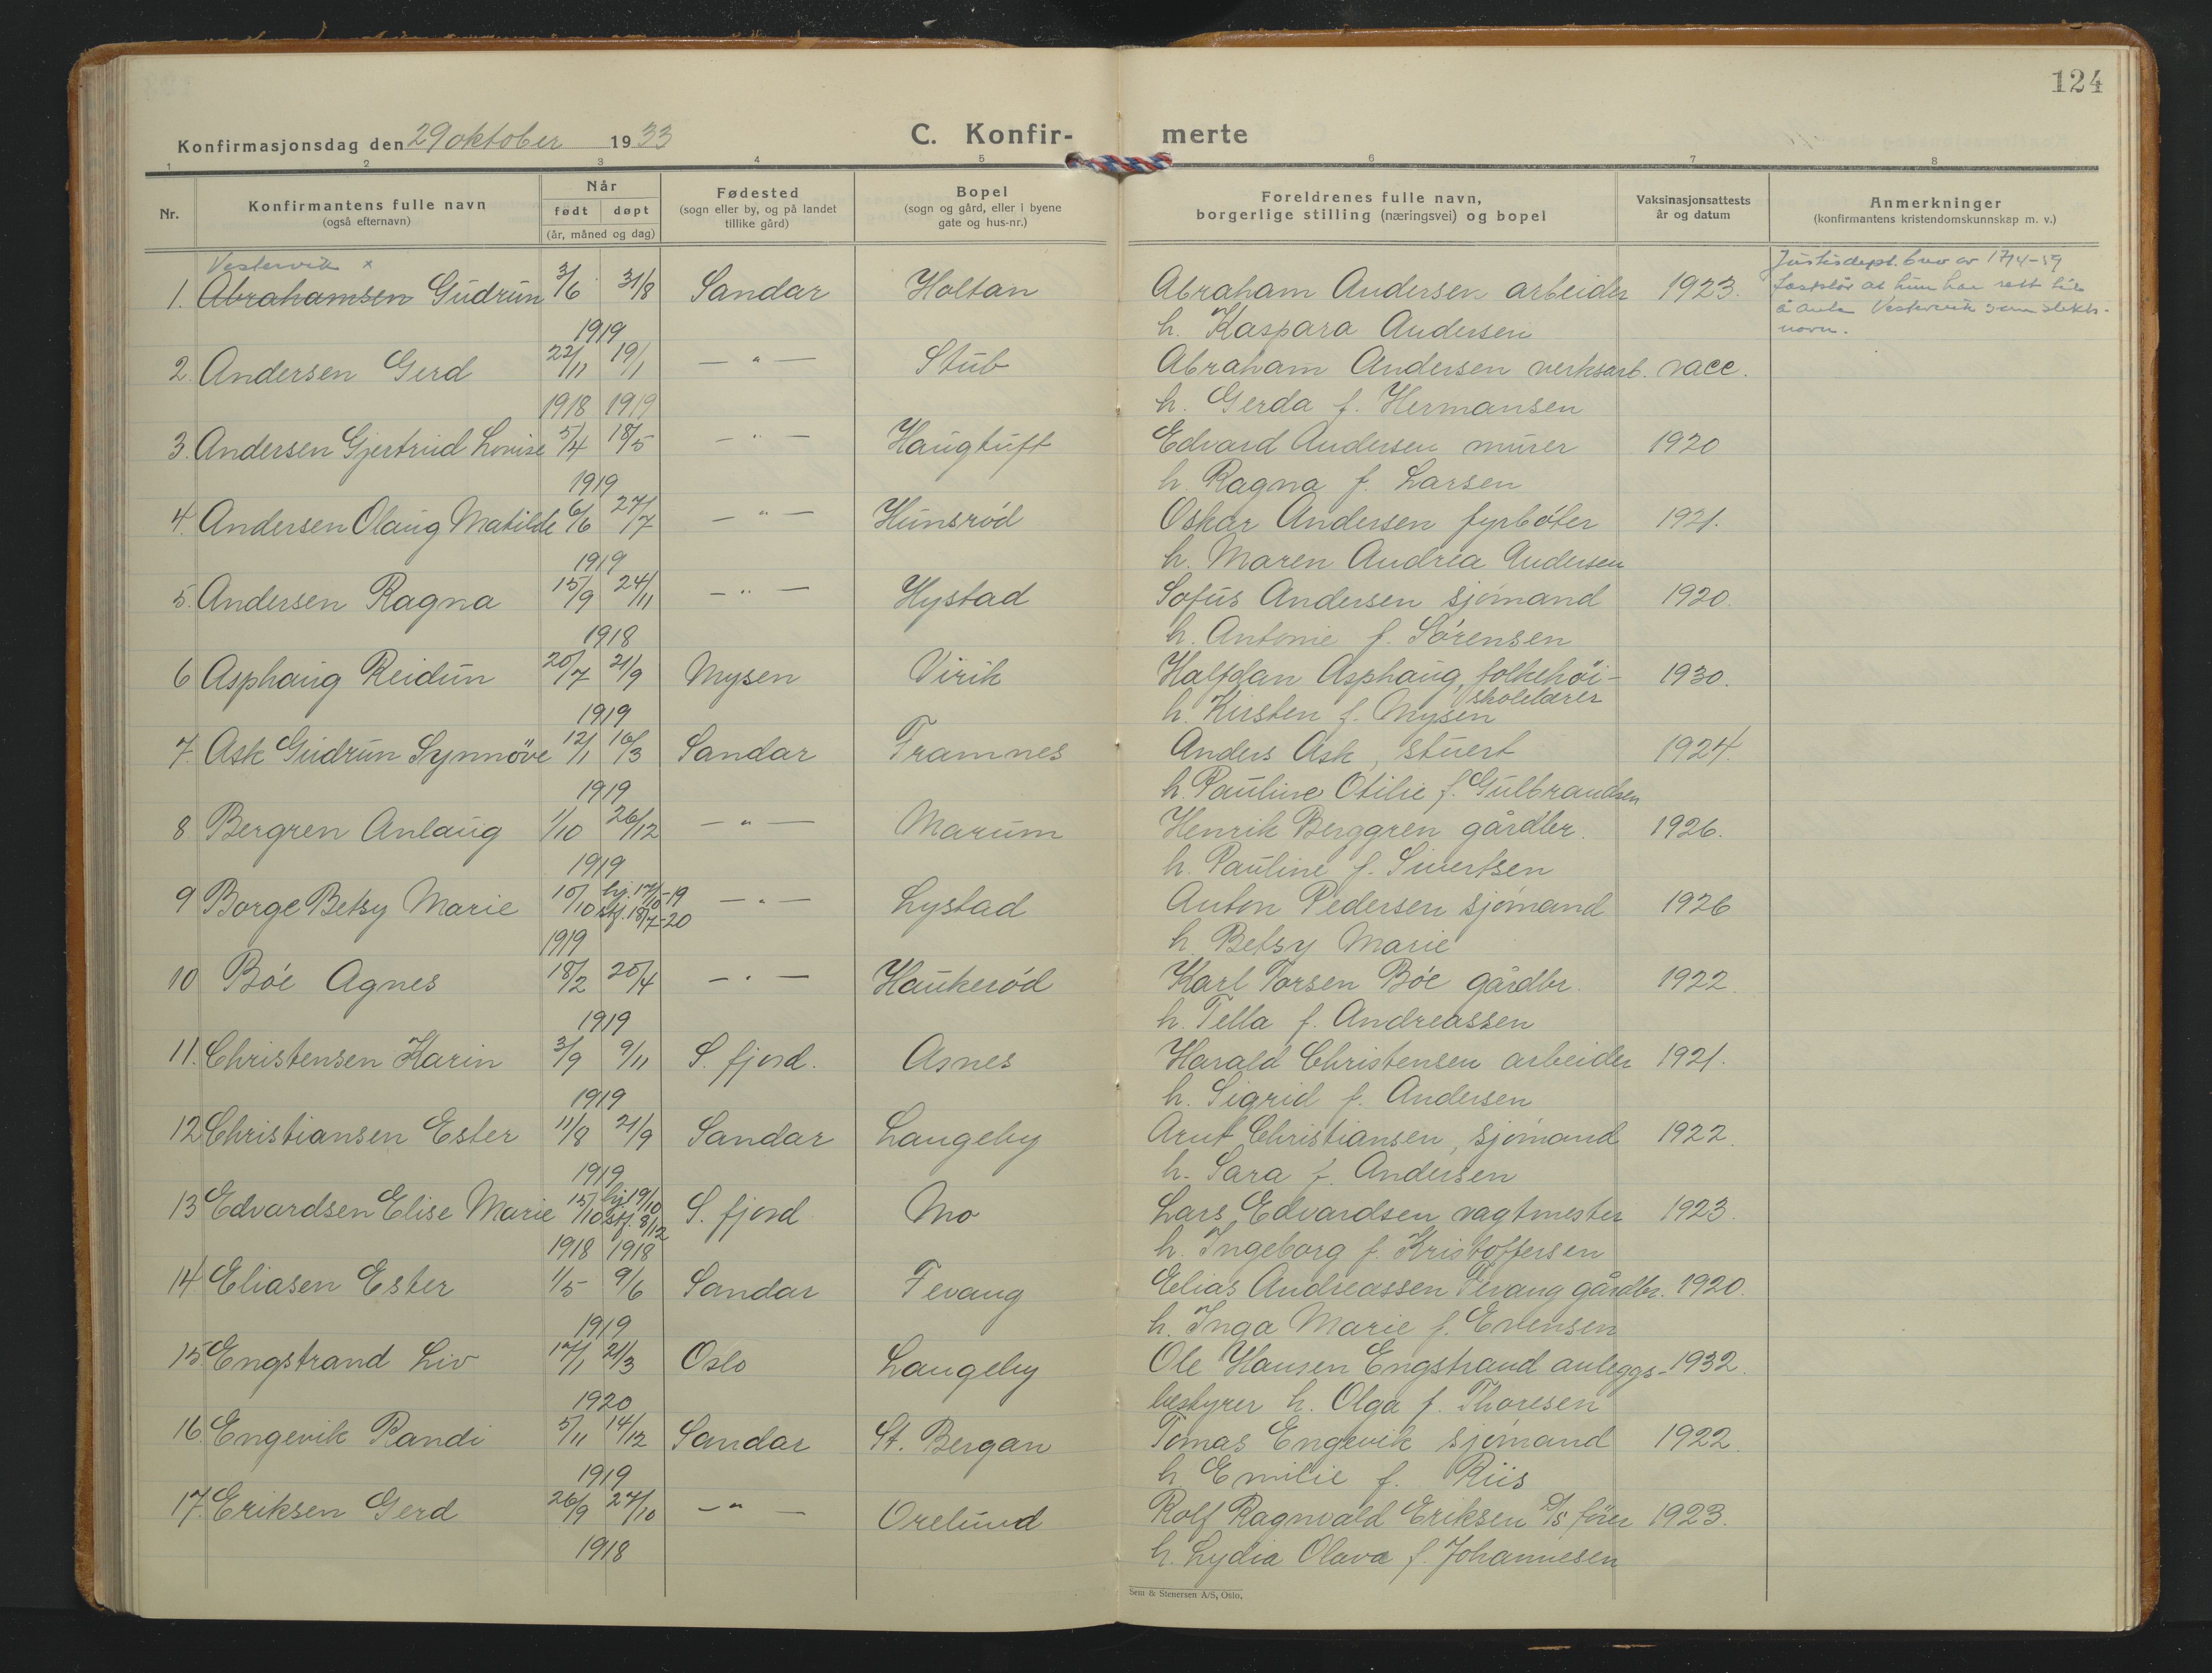 124
Konfirmasjonsdag den 29 oktober 1933
C. Konfir- merte
1 2 3 4 5 6 7 8
Nr.
Konfirmantens fulle navn
(også efternavn)
Når
født døpt
(år, måned og dag)
Fødested
(sogn eller by, og på landet
tillike gård)
Bopel
(sogn og gård, eller i byene
gate og hus-nr.)
Foreldrenes fulle navn,
borgerlige stilling (næringsvei) og bopel
Vaksinasjonsattests
år og datum
Anmerkninger
(konfirmantens kristendomskunnskap m. v.)
Vestervik x
Justisdept. brev av 17/4-59
1. Abrahamsen Gudrun 3/6 31/8 Sandar Holtan Abraham Andersen arbeider 1923. fastslår at hun har rett til
å anta Vestervik som slekts-
1919 h. Kaspara Andersen navn.
2. Andersen Gerd 22/11 19/1 — " — Stub Abraham Andersen verksarb. vacc.
1918 1919 h. Gerda f. Hermansen
3. Andersen Gjertrud Lovise 5/4 18/5 — " — Haugtuft Edvard Andersen murer 1920
1919 h. Ragna f. Larsen
4. Andersen Olaug Matilde 6/6 27/7 — " — Hunsrød Oskar Andersen fyrbøter 1921.
1919 h. Maren Andrea Andersen
5. Andersen Ragna 15/9 24/11 — " — Hystad Sofus Andersen sjømand 1920.
1918 h. Antonie f. Sørensen
6 Asphaug Reidun 20/7 21/9 Mysen Virik Halfdan Asphaug, folkehøi- 1930.
skolelærer
1919 h. Kirsten f. Mysen
7. Ask Gudrun Synnøve 12/1 16/3 Sandar Framnes Anders Ask, stuert 1924.
1919 h. Pauline Otilie f. Gulbrandsen
8. Bergren Anlaug 1/10 26/12 — " — Marum Henrik Berggren gårdbr. 1926.
1919 h. Pauline f. Sivertsen
9 Borge Betsy Marie 10/10 hj. 17/10-19 stf. 18/7-20 — " — Lystad Anton Pedersen sjømand 1926
1919 h. Betsy Marie
10 Bøe Agnes 18/2 20/4 — " — Haukerød Karl Torsen Bøe gårdbr. 1922.
1919 h. Tella f. Andreassen
11. Christensen Karin 3/9 9/11 S. fjord. Asnes Harald Christensen arbeider 1921.
1919 h. Sigrid f. Andersen
12 Christiansen Ester 11/8 21/9 Sandar Langeby Arnt Christiansen, sjømand 1922.
1919 h. Sara f. Andersen
13 Edvardsen Elise Marie 15/10 hj. 19/10 stf. 8/12 S. fjord Mo Lars Edvardsen vagtmester 1923.
1918 1918 h. Ingeborg f. Kristoffersen
14. Eliasen Ester 1/5 9/6 Sandar Fevang Elias Andreassen Fevang gårdbr. 1920.
1919 h. Inga Marie f. Evensen
15 Engstrand Liv 17/1 21/3 Oslo Langeby Ole Hansen Engstrand anleggs- 1932.
1920 bestyrer h. Olga f. Thoresen
16. Engevik Randi 5/11 14/12 Sandar St. Bergan Tomas Engevik sjømand 1922.
1919 h Emilie f. Riis
17. Eriksen Gerd 26/9 27/10 — " — Orelund Rolf Ragnvald Eriksen D/S fører 1923.
1918 h. Lydia Olava f. Johannesen
Sem & Stenersen A/S, Oslo.